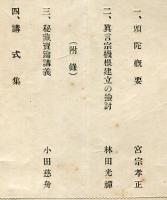 一、頭陀概要　宮宗孝正
二、真言宗機根建立の検討　林田光禅
（附錄）
三、秘藏寶鑰講義　小田慈舟
四、講式集